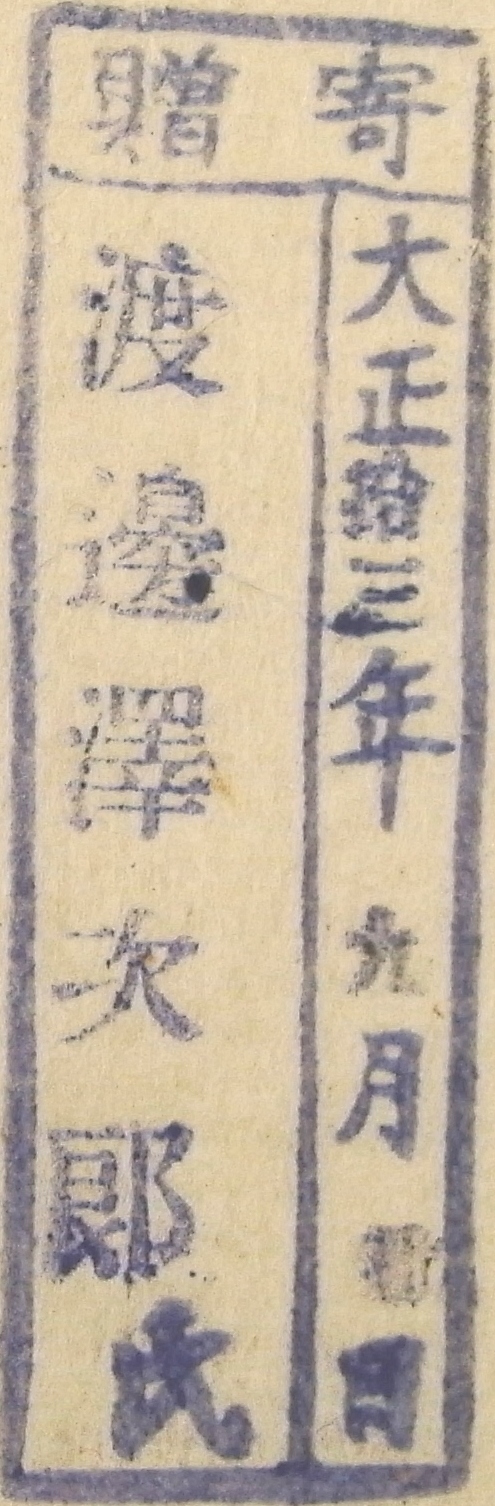 寄贈
大正拾三年九月 日
渡邊澤次郎氏